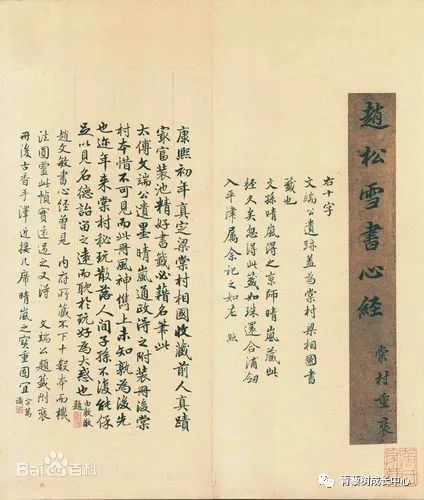 趙松雪書心經
棠村重裝
右十字
文端公遺跡蓋為棠村梁相國書
籤也
文孫晴嵐得之京師晴嵐藏此
經久矣忽得此籤如珠還合浦劒
入平津属余記之如右 照
康熙初年真定梁棠村相國收藏前人真蹟
最富裝池精好書籤必藉名筆此
太傅文端公遺墨晴嵐道政得之附裝冊後棠
村本惜不可見而此冊風神儁上未知孰為後先
也近年来棠村秘玩散落人間子孫不復能保
益以見名德詒留之遠而耽於玩好為大惑也 由敦敬題
趙文敏書心經曾見 內府所藏不下十數本而機
法圓靈此幀實遠過之又得 文端公題籤附裝
冊後古香手澤近接几席晴嵐之寶重固宜 識
Bai百科
树成长中心